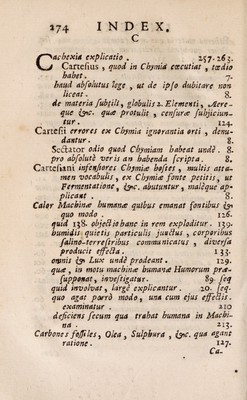 274 INDEX.
C
Cachexia explicatio. 257.263.
Cartesius, quod in Chymia cœcutiat, tædio
habet. 7.
haud absolutus lege, ut de ipso dubitare non
liceat. 8.
de materia subtili, globulis 2. Elementi, Aere-
que &c. quæ protulit, censuræ subjiciun-
tur. 124.
Cartesii errores ex Chymia ignorantia orti, denu-
dantur. 8.
Sectator odio quod Chymiam habeat unde. 8.
pro absolutè veris an habenda scripta. 8.
Cartesiani infensiores Chymiæ hostes, multis atta-
men vocabulis, ex Chymiæ fonte petitis, ut
Fermentatione, &c. abutuntur, malèque ap-
plicant. 8.
Calor Machinæ humanæ quibus emanet fontibus &
quo modo. 126.
quid 138. objectio hanc in rem exploditur. 130.
humidis quietis particulis junctus, corporibus
salino-terrestribus communicatus, diversa
producit effecta. 133.
omnis & Lux unde prodeant. 129.
quæ, in motu machinæ humanæ Humorum præ-
supponat, investigatur. 89. seq
quid involvat, largè explicantur. 20. seq.
quo agat porrò modo, una cum ejus effectis.
examinatur. 210
deficiens secum qua trahat humana in Machi-
na. 213.
Carbones fossiles, Olea, Sulphura, &c. qua agant
ratione. 127.
Ca-